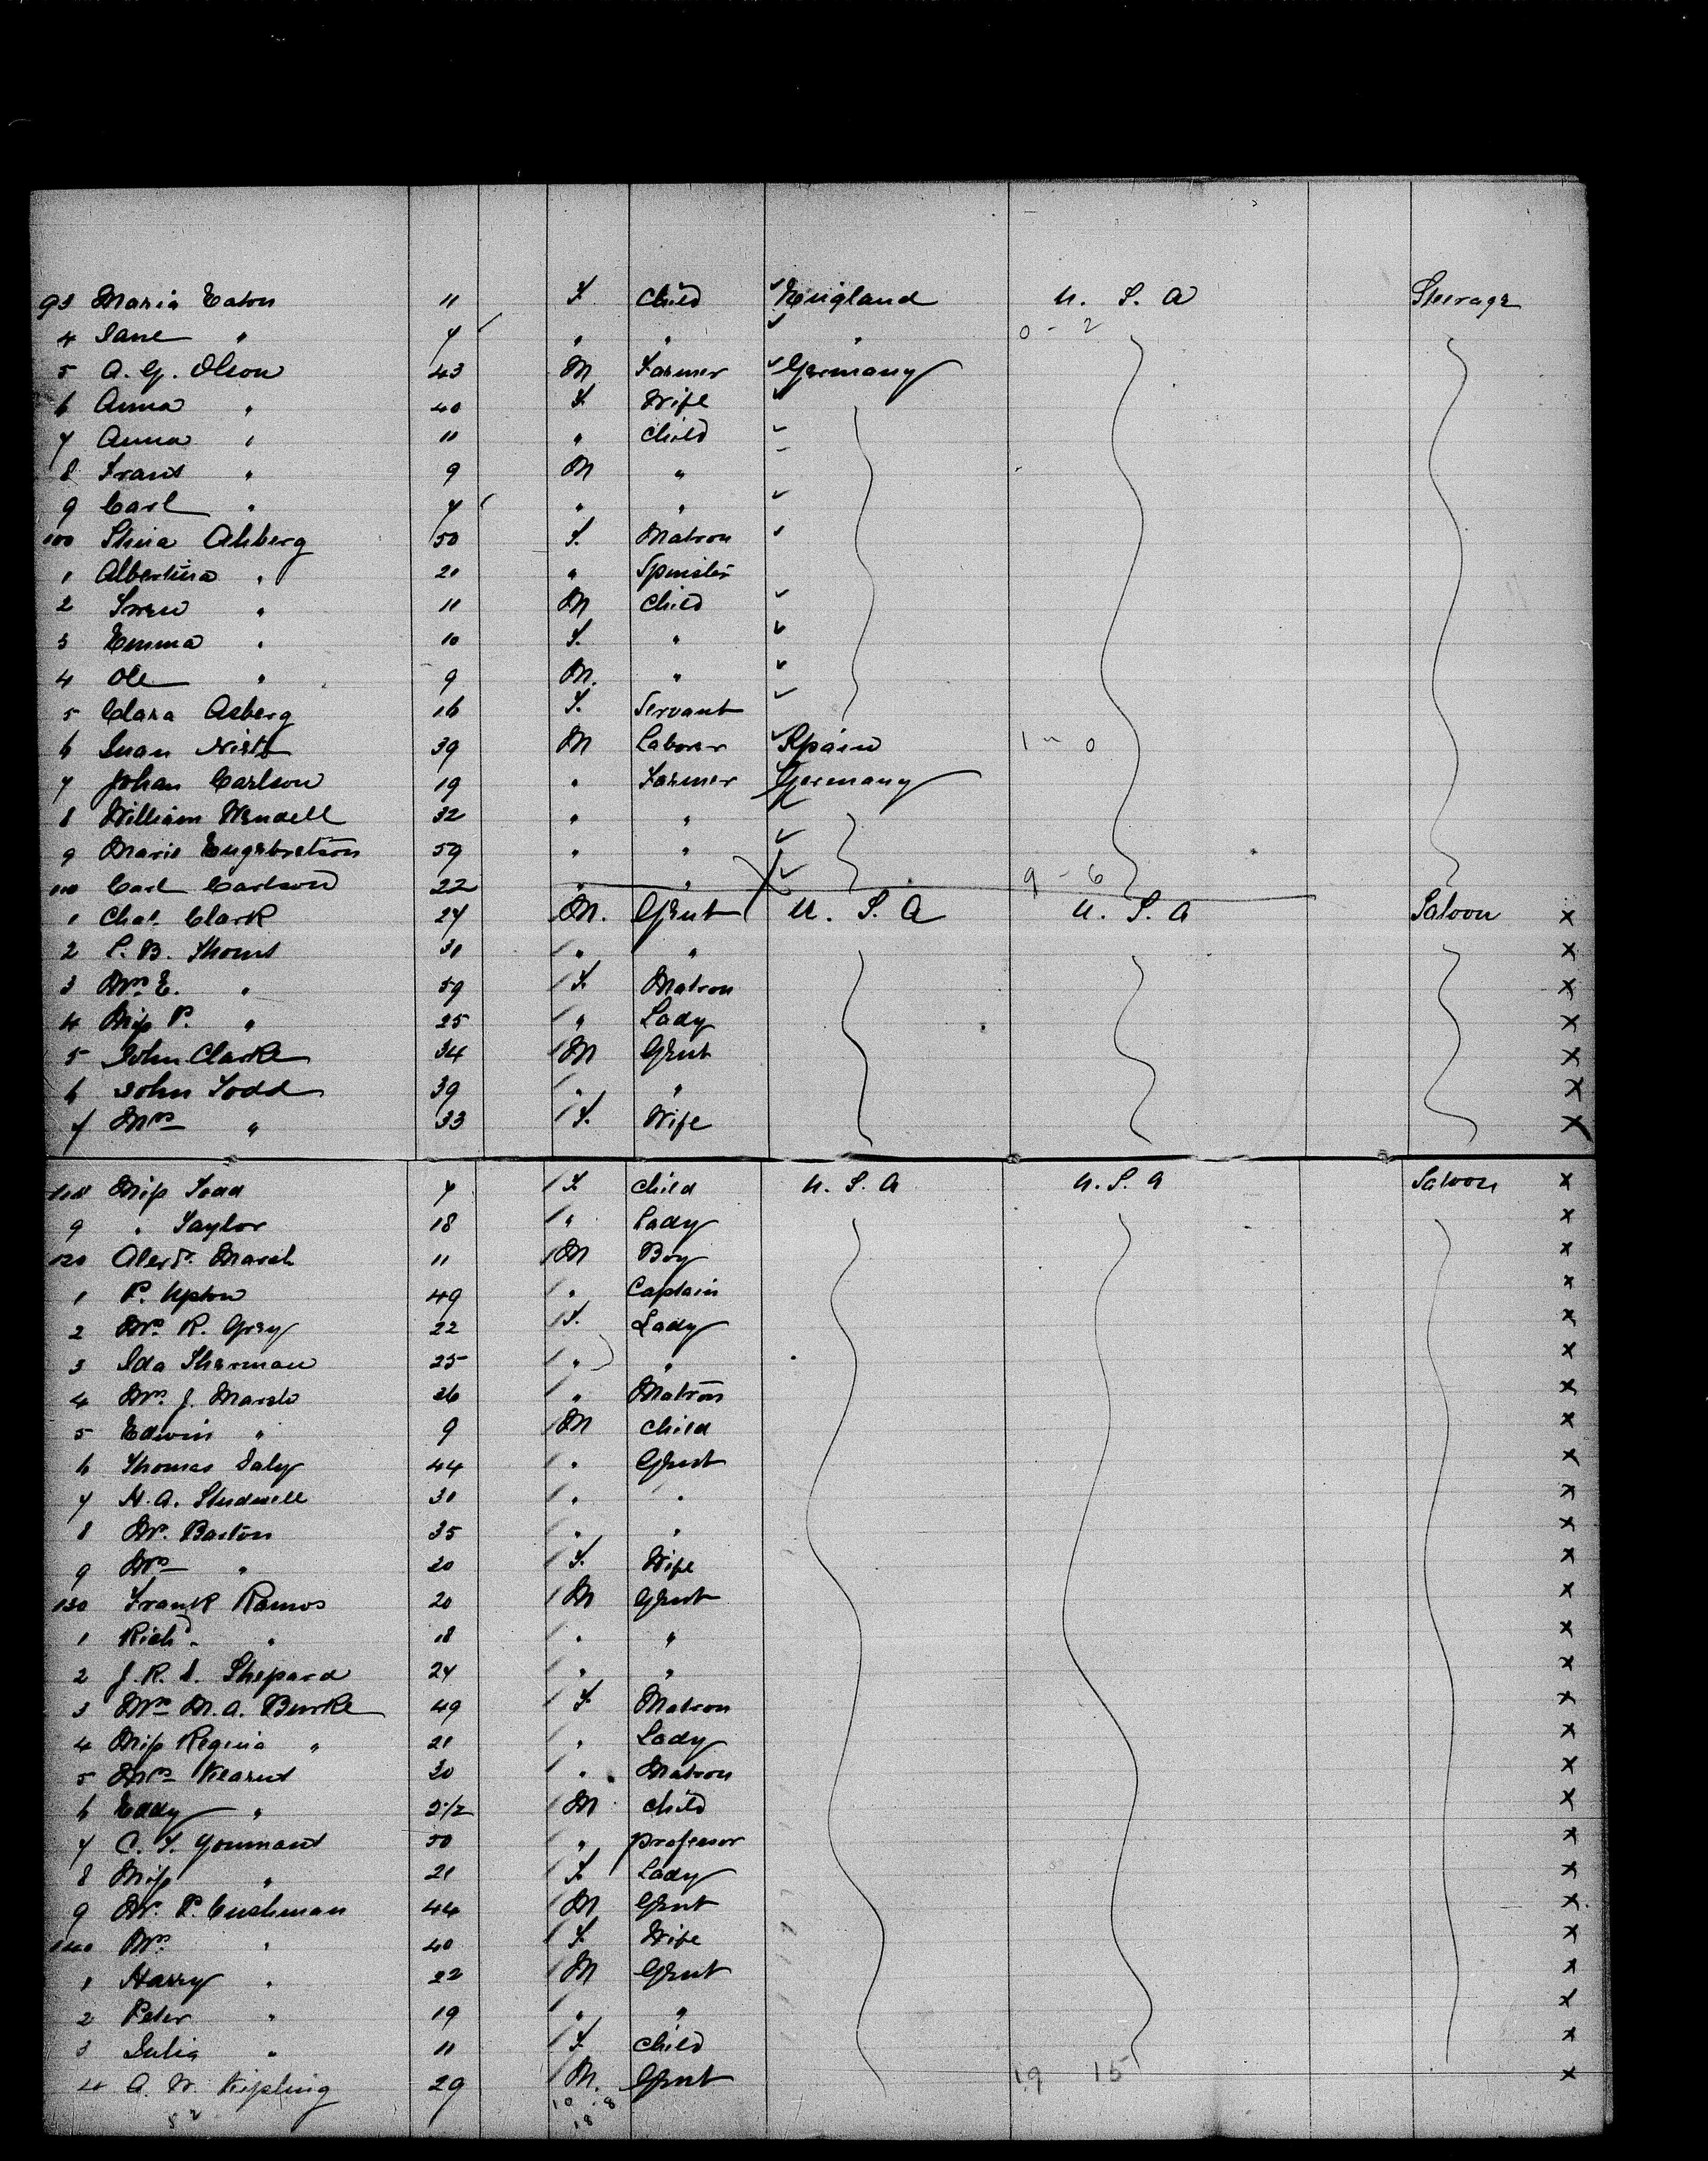 93 Maria Eaton 11 F. Child England U. S. A Steerage
4 Jane " 7 " " " 0 - 2
5 A. G. Olson 43 M Farmer Germany
6 Anna " 40 F. Wife
7 Anna " 11 " Child
8 Frans " 9 M "
9 Carl " 7 " "
100 Stina Ahberg 50 F. Matron
1 Albertina " 20 " Spinster
2 Swen " 11 M Child
3 Emma " 10 F. "
4 Ole " 9 M. "
5 Clara Asberg 16 F. Servant
6 Juan 39 M Laborer Spain 1 - 0
7 Johan Carlson 19 " Farmer Germany
8 William Wendell 32 " "
9 Maris Engebretson 59 " "
110 Carl Carlson 22 " " 9 - 6
1 Chas. Clark 27 M. Gent U. S. A U. S. A Saloon x
2 30 " " x
3 Mrs E. " 59 F. Matron x
4 Miss P. " 25 " Lady x
5 John Clarke 34 M Gent x
6 John Todd 39 " " x
7 Mrs " 33 F. Wife x
118 Miss Todd 7 F. Child U. S. A U. S. A Saloon x
9 " Taylor 18 " Lady x
120 Marsh 11 M Boy x
1 P. Upton 49 " Captain x
2 Mrs R. Grey 22 F. Lady x
3 Ida Sherman 25 " " x
4 Mrs. J. Marsh 26 " Matron x
5 Edwin " 9 M Child x
6 Thomas Daly 44 " Gent x
7 H. A. Studwell 30 " " x
8 Mr. Barton 35 " " x
9 Mrs " 20 F. Wife x
130 Frank Ramos 20 M Gent x
1 Richd. " 18 " " x
2 J. R. S. Shepard 27 " " x
3 Mrs M. A. Burke 49 F. Matron x
4 Miss Regina " 21 " Lady x
5 Mrs 30 " Matron x
6 Eddy " 2 1/2 M Child x
7 C. F. Youmans 50 " Professor x
8 Miss " 21 F. Lady x
9 Mr. P. Cushman 44 M Gent x
140 Mrs. " 40 F. Wife x
1 Harry " 22 M Gent x
2 Peter " 19 " " x
3 Julia " 11 F. Child x
4 A. W. Kipling 29 M. Gent 19 15 x
52 10 8
18